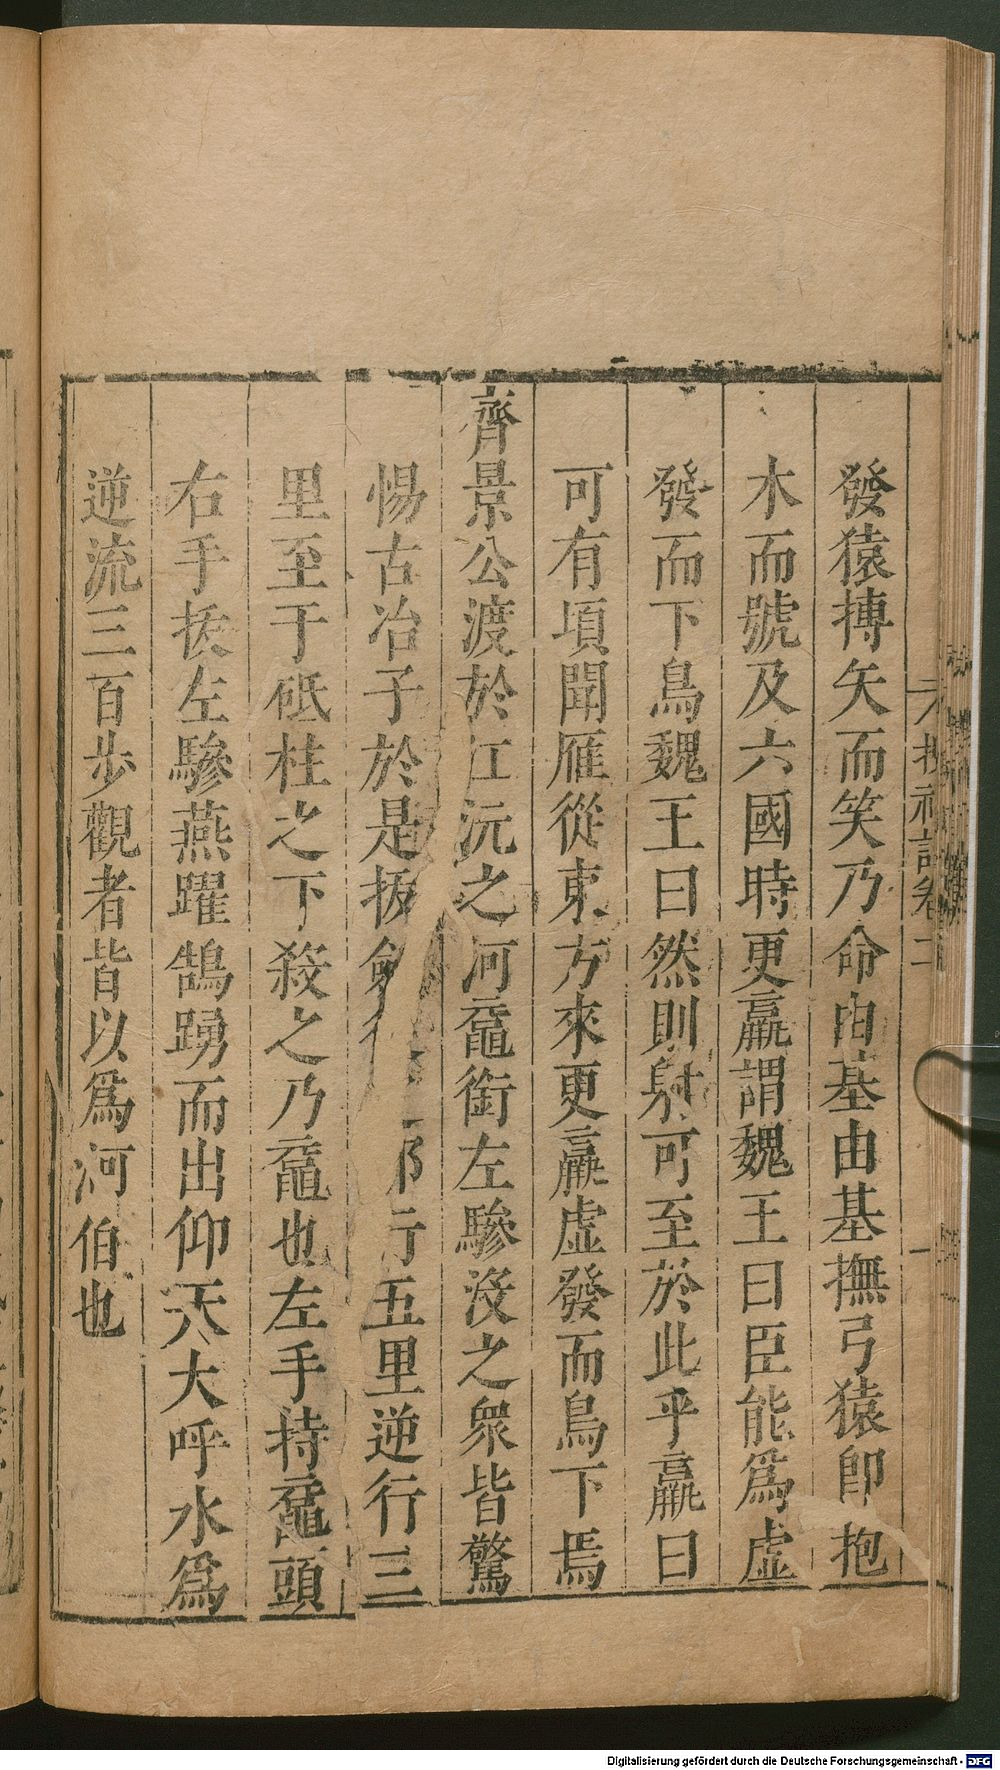 發猿搏矢而笑乃命由基由基撫弓猿卽抱
木而號及六國時更羸謂魏王曰臣能爲虛
發而下鳥魏王曰然則射可至於此乎羸曰
可有頃聞雁從東方來更羸虛發而鳥下焉
齊景公渡於江沅之河黿銜左驂沒之衆皆驚
惕古冶子於是拔劍行五里逆行三
里至于砥柱之下殺之乃黿也左手持黿頭
右手挾左驂燕躍鵠踴而出仰天大呼水爲
逆流三百步觀者皆以爲河伯也
搜神記卷
Digitalisierung gefördert durch die Deutsche Forschungsgemeinschaft - DFG